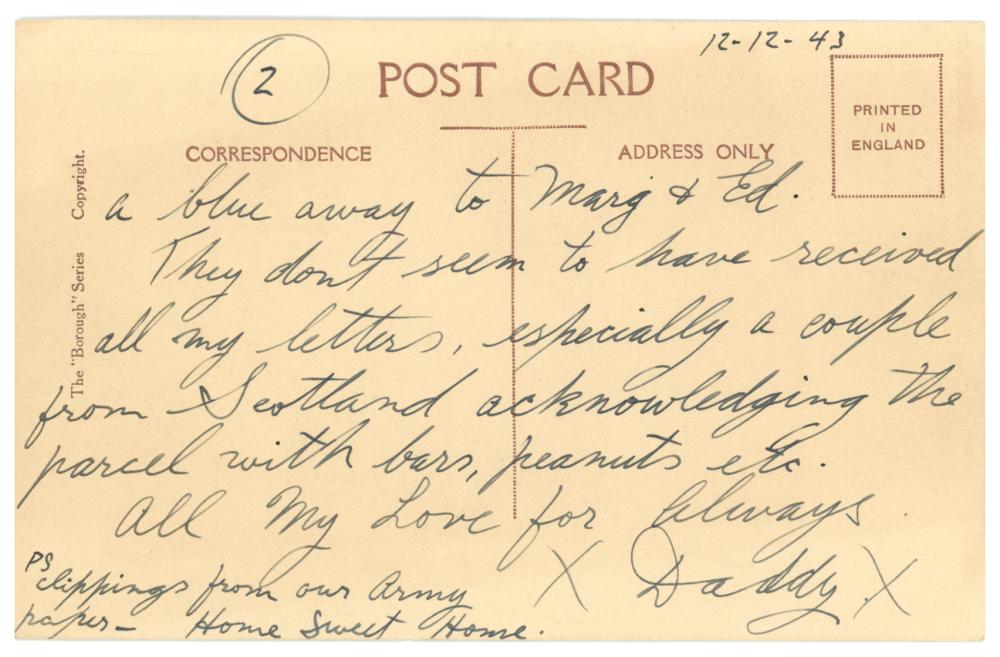 12-12-43
2
POST CARD
PRINTED
IN
ENGLAND
CORRESPONDENCE
ADDRESS ONLY
The "Borough" Series Copyright.
a blue away to Marg & Ed.
They don't seem to have received
all my letters, especially a couple
from Scotland acknowledging the
parcel with bars, peanuts etc.
All My Love for Always.
X Daddy X
PS
clippings from our Army
paper - Home Sweet Home.